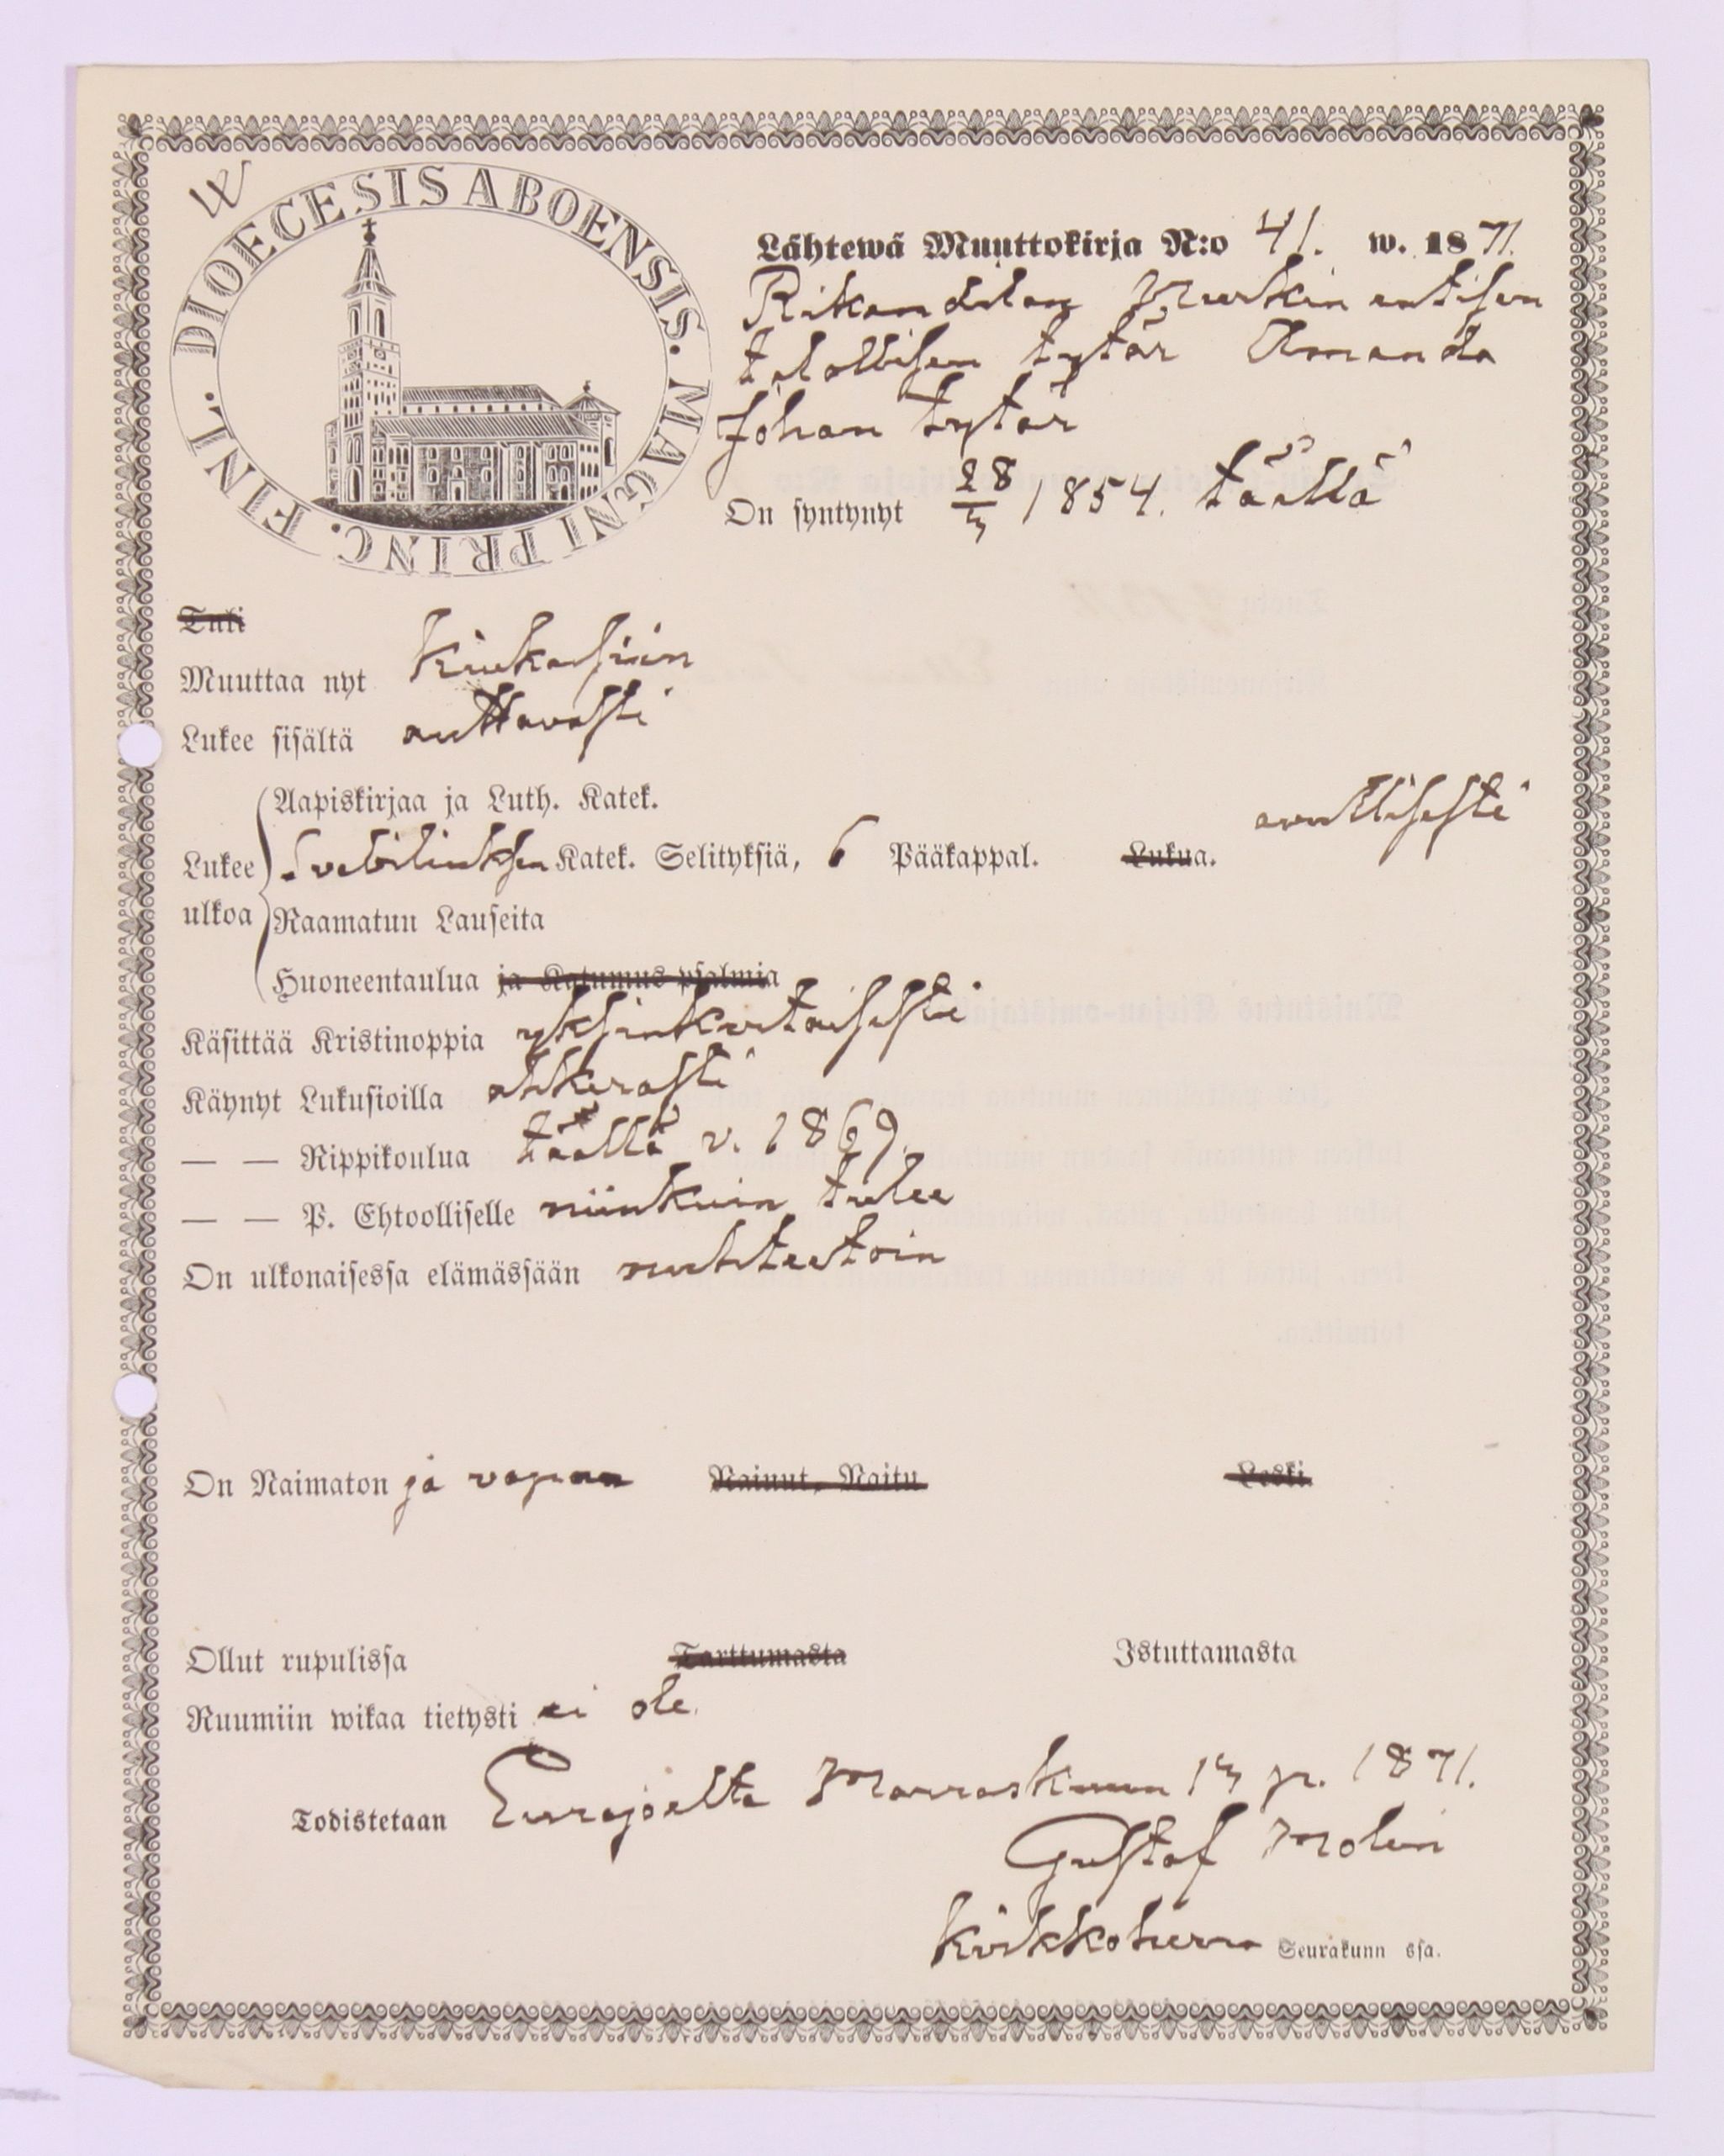 W
DIOECESIS ABOENSIS. MAGNI PRINC. FINL.
Lähtewä Muuttokirja N:o 41. w. 1871.
Rikantilan Murkin entisen
talollisen tytär Amanda
Johan tytär
On syntynyt 28/3 1854. täällä
Tuli
Muuttaa nyt Kiukaisiin
Lukee sisältä auttavasti
Aapiskirjaa ja Luth. Katek.
avullisesti
Lukee Svebiliuksen Katek. Selityksiä, 6 Pääkappal. Lukua.
ulkoa Raamatun Lauseita
Huoneentaulua ja Katumus psalmia
Käsittää Kristinoppia yksinkertaisesti
Käynyt Lukusioilla ahkerasti
— — Rippikoulua täällä v. 1869.
— — P. Ehtoolliselle niinkuin tulee
On ulkonaisessa elämässään nuhteetoin
On Naimaton ja vapaa Nainut, Naitu Leski
Ollut rupulissa Tarttumasta Istuttamasta
Ruumiin wikaa tietysti ei ole.
Todistetaan Eurajoelta Marraskuun 13 p. 1871.
Gustaf Molin
Kirkkoherra Seurakunn ssa.